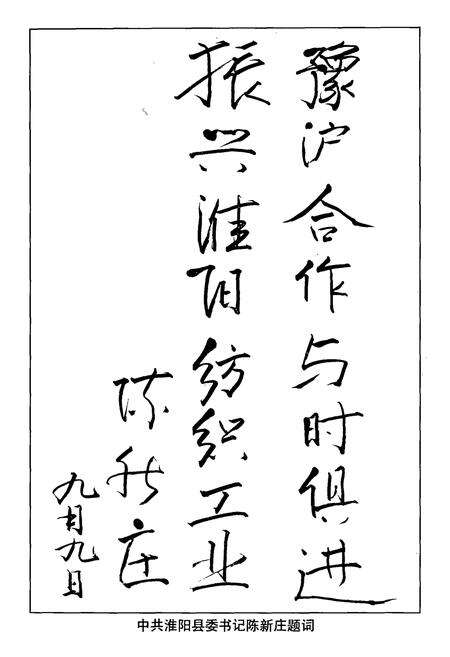 豫沪合作与时俱进
振兴淮阳纺织工业
陈新庄
九月九日
中共淮阳县委书记陈新庄题词